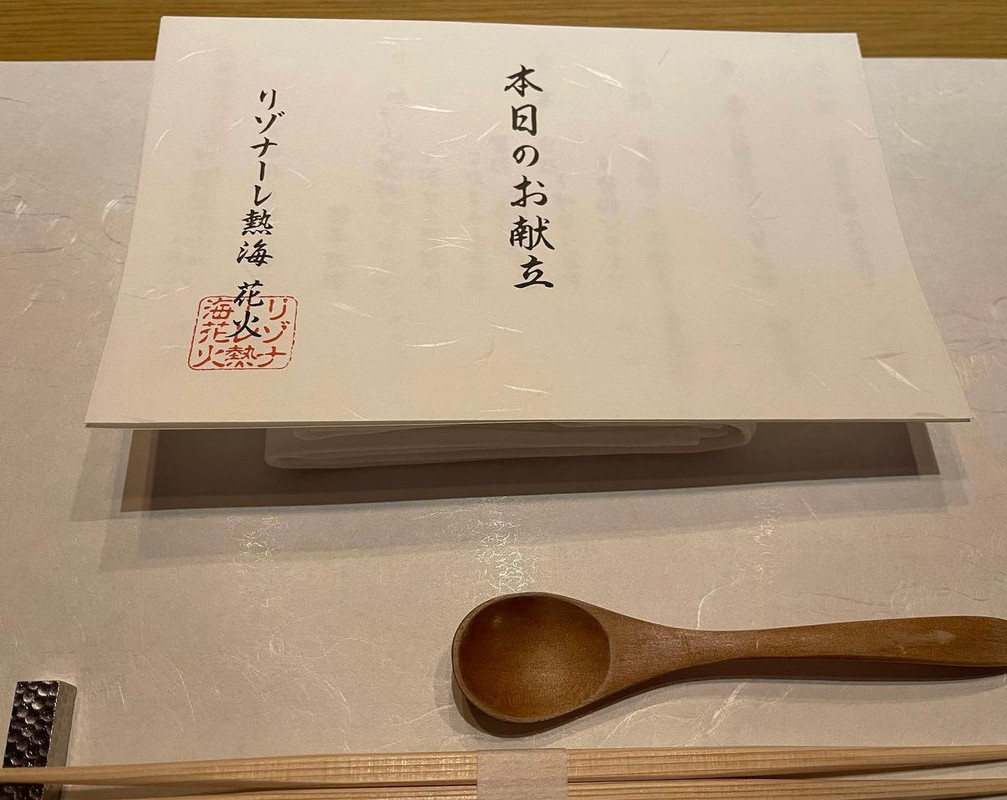 本日のお献立
リゾナーレ熱海 花火
リゾナ
ーレ熱
海花火